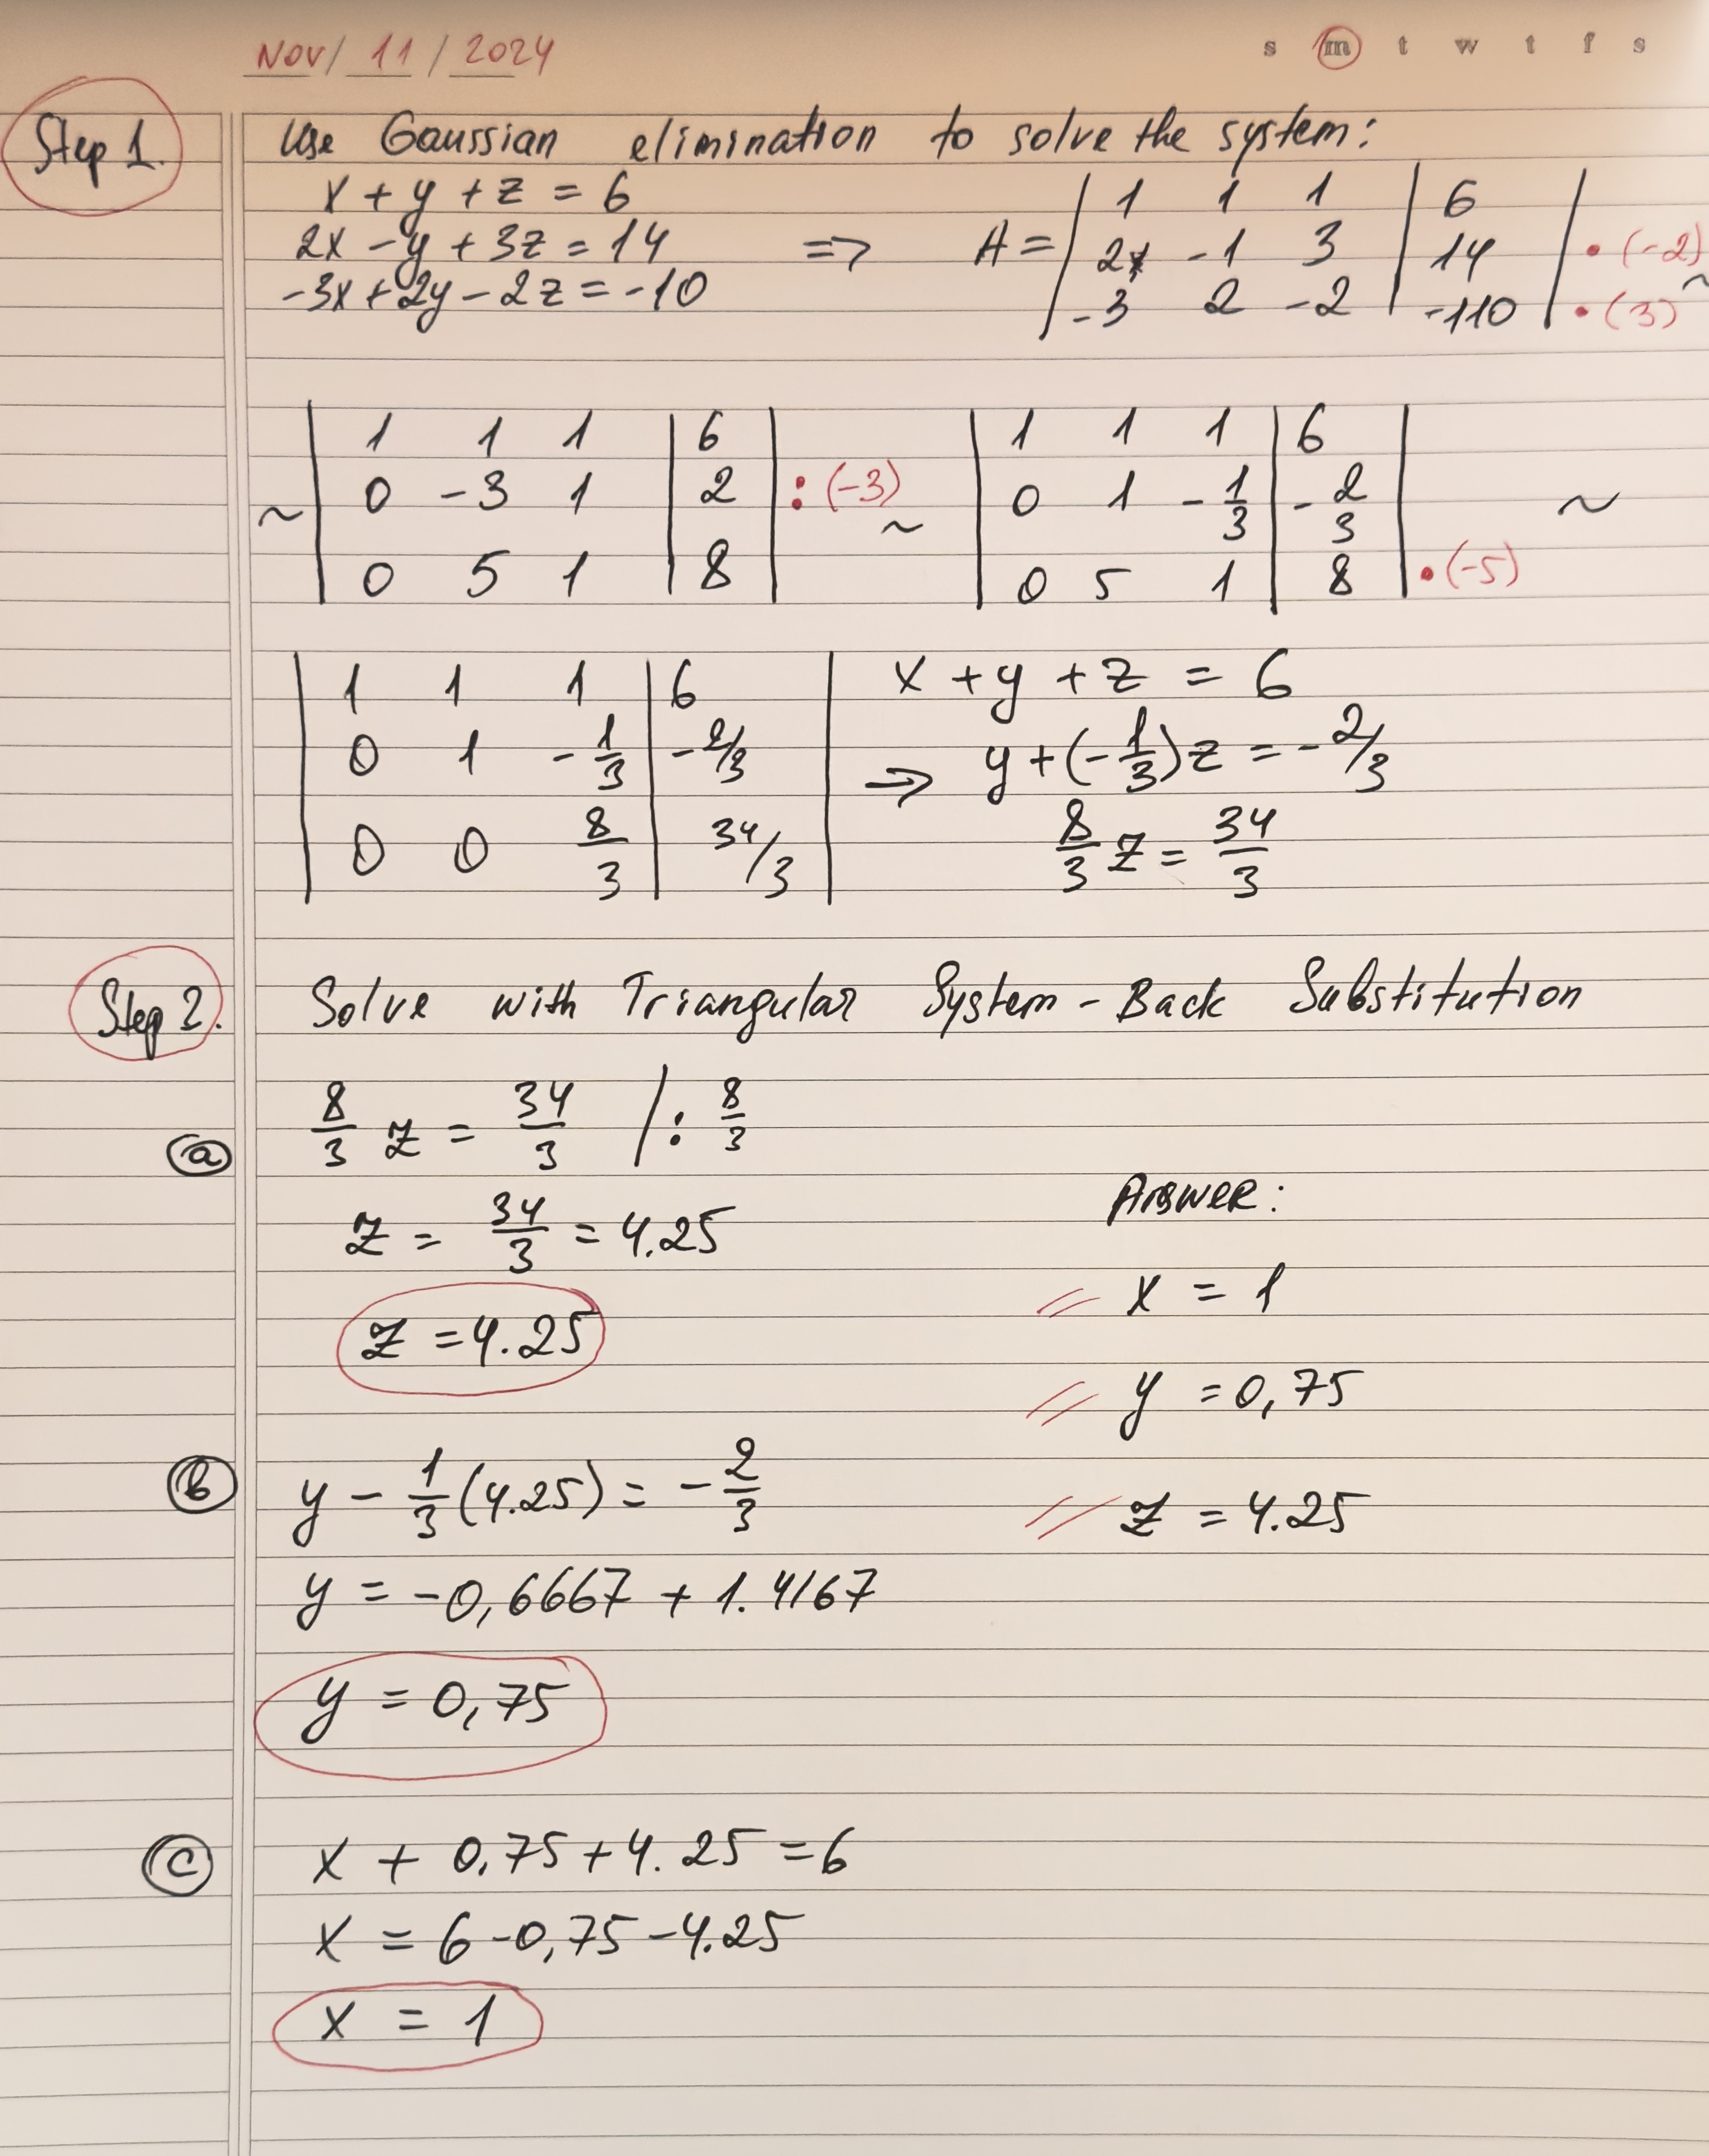 Nov/ 11 / 2024
s m t w t f s
Step 1. Use Gaussian elimination to solve the system:
x + y + z = 6
2x - y + 3z = 14
-3x + 2y - 2z = -10
=> A =
1 1 1 | 6
2 -1 3 | 14 | • (-2)
-3 2 -2 | -110 | • (3) ~
~
1 1 1 | 6
0 -3 1 | 2 | : (-3)
0 5 1 | 8
~
1 1 1 | 6
0 1 -1/3 | -2/3
0 5 1 | 8 | • (-5)
~
1 1 1 | 6
0 1 -1/3 | -2/3
0 0 8/3 | 34/3
=>
x + y + z = 6
y + (-1/3)z = -2/3
8/3 z = 34/3
Step 2. Solve with Triangular System - Back Substitution
a
8/3 z = 34/3 / : 8/3
z = 34/3 = 4.25
z = 4.25
b
y - 1/3 (4.25) = -2/3
y = -0,6667 + 1.4167
y = 0,75
c
x + 0,75 + 4.25 = 6
x = 6 - 0,75 - 4.25
x = 1
Answer:
x = 1
y = 0,75
z = 4.25